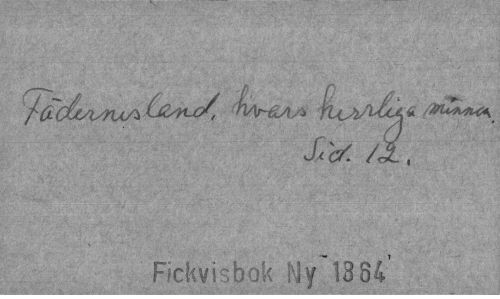 Fädernesland, hvars herrliga minnen.
Sid. 12.
Fickvisbok Ny 1864